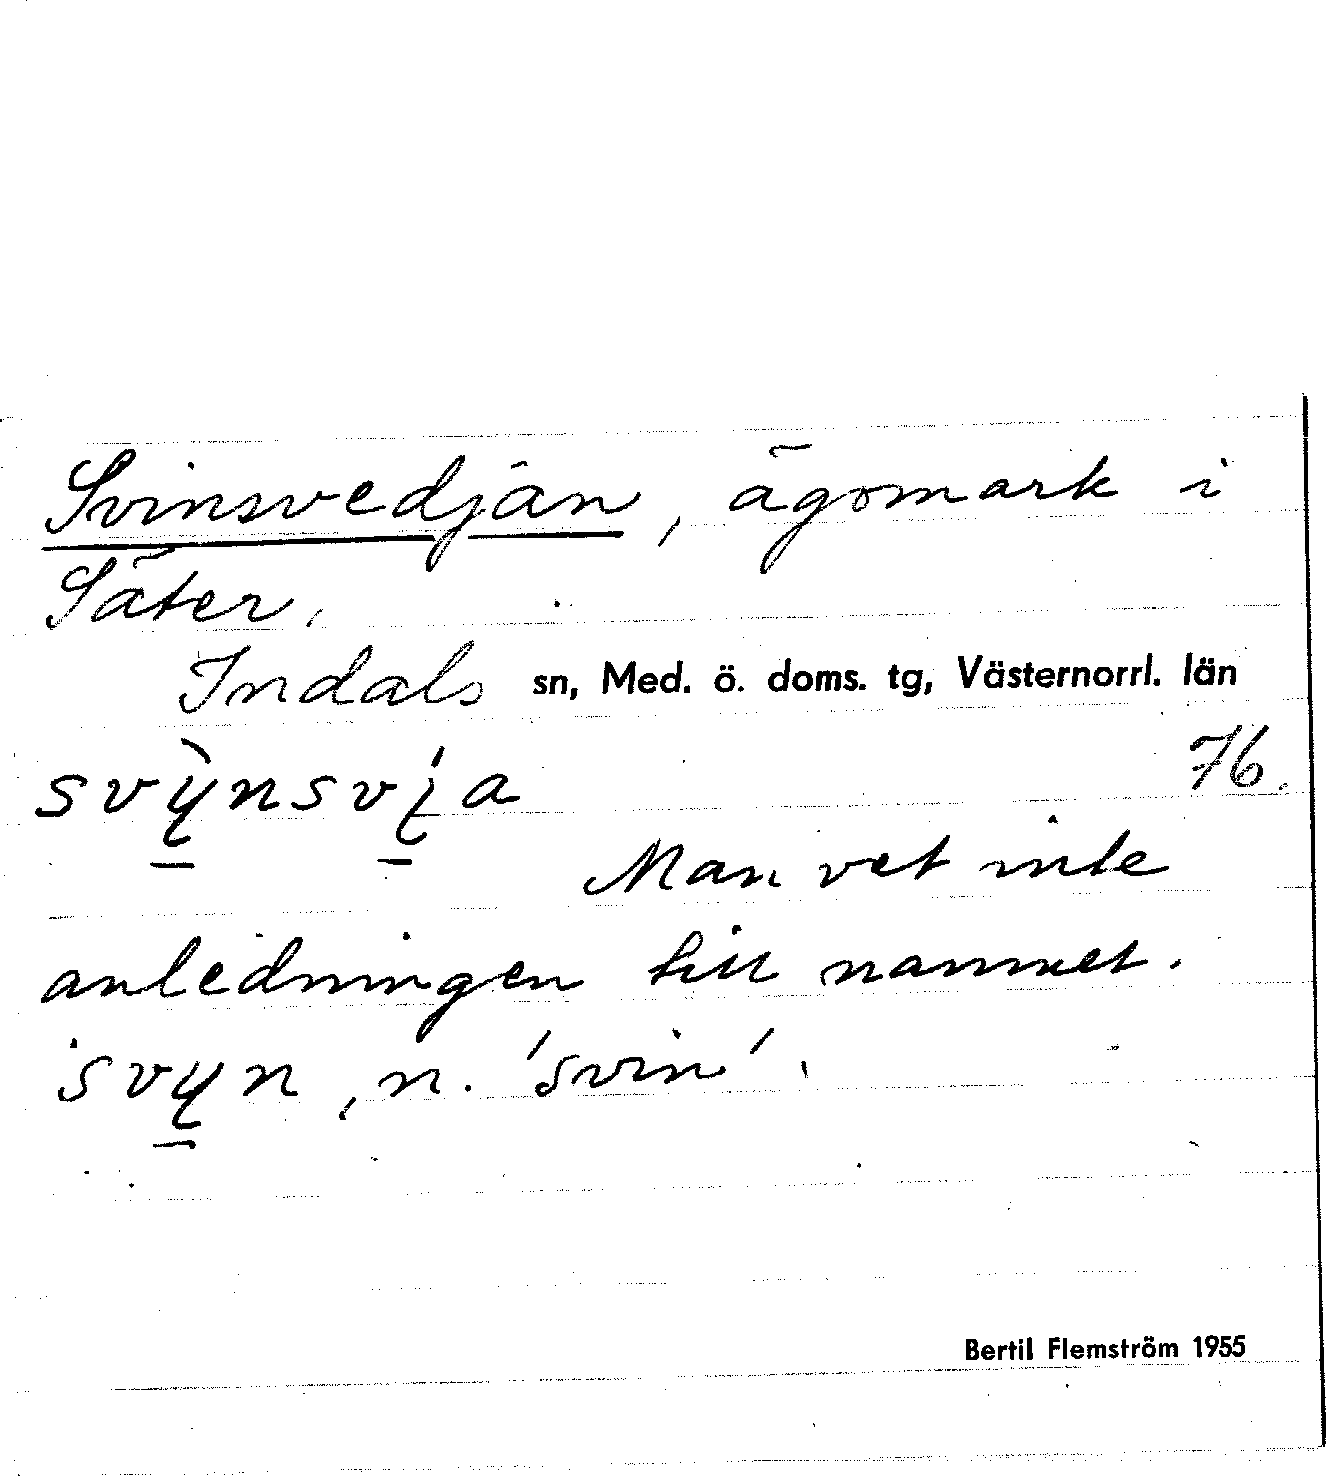 Svinsvedjan, ägomark i
Säter,
Indals sn, Med. ö. doms. tg, Västernorrl. län
76.
Man vet inte
anledningen till namnet.
svyn, n. 'svin'.
Bertil Flemström 1955